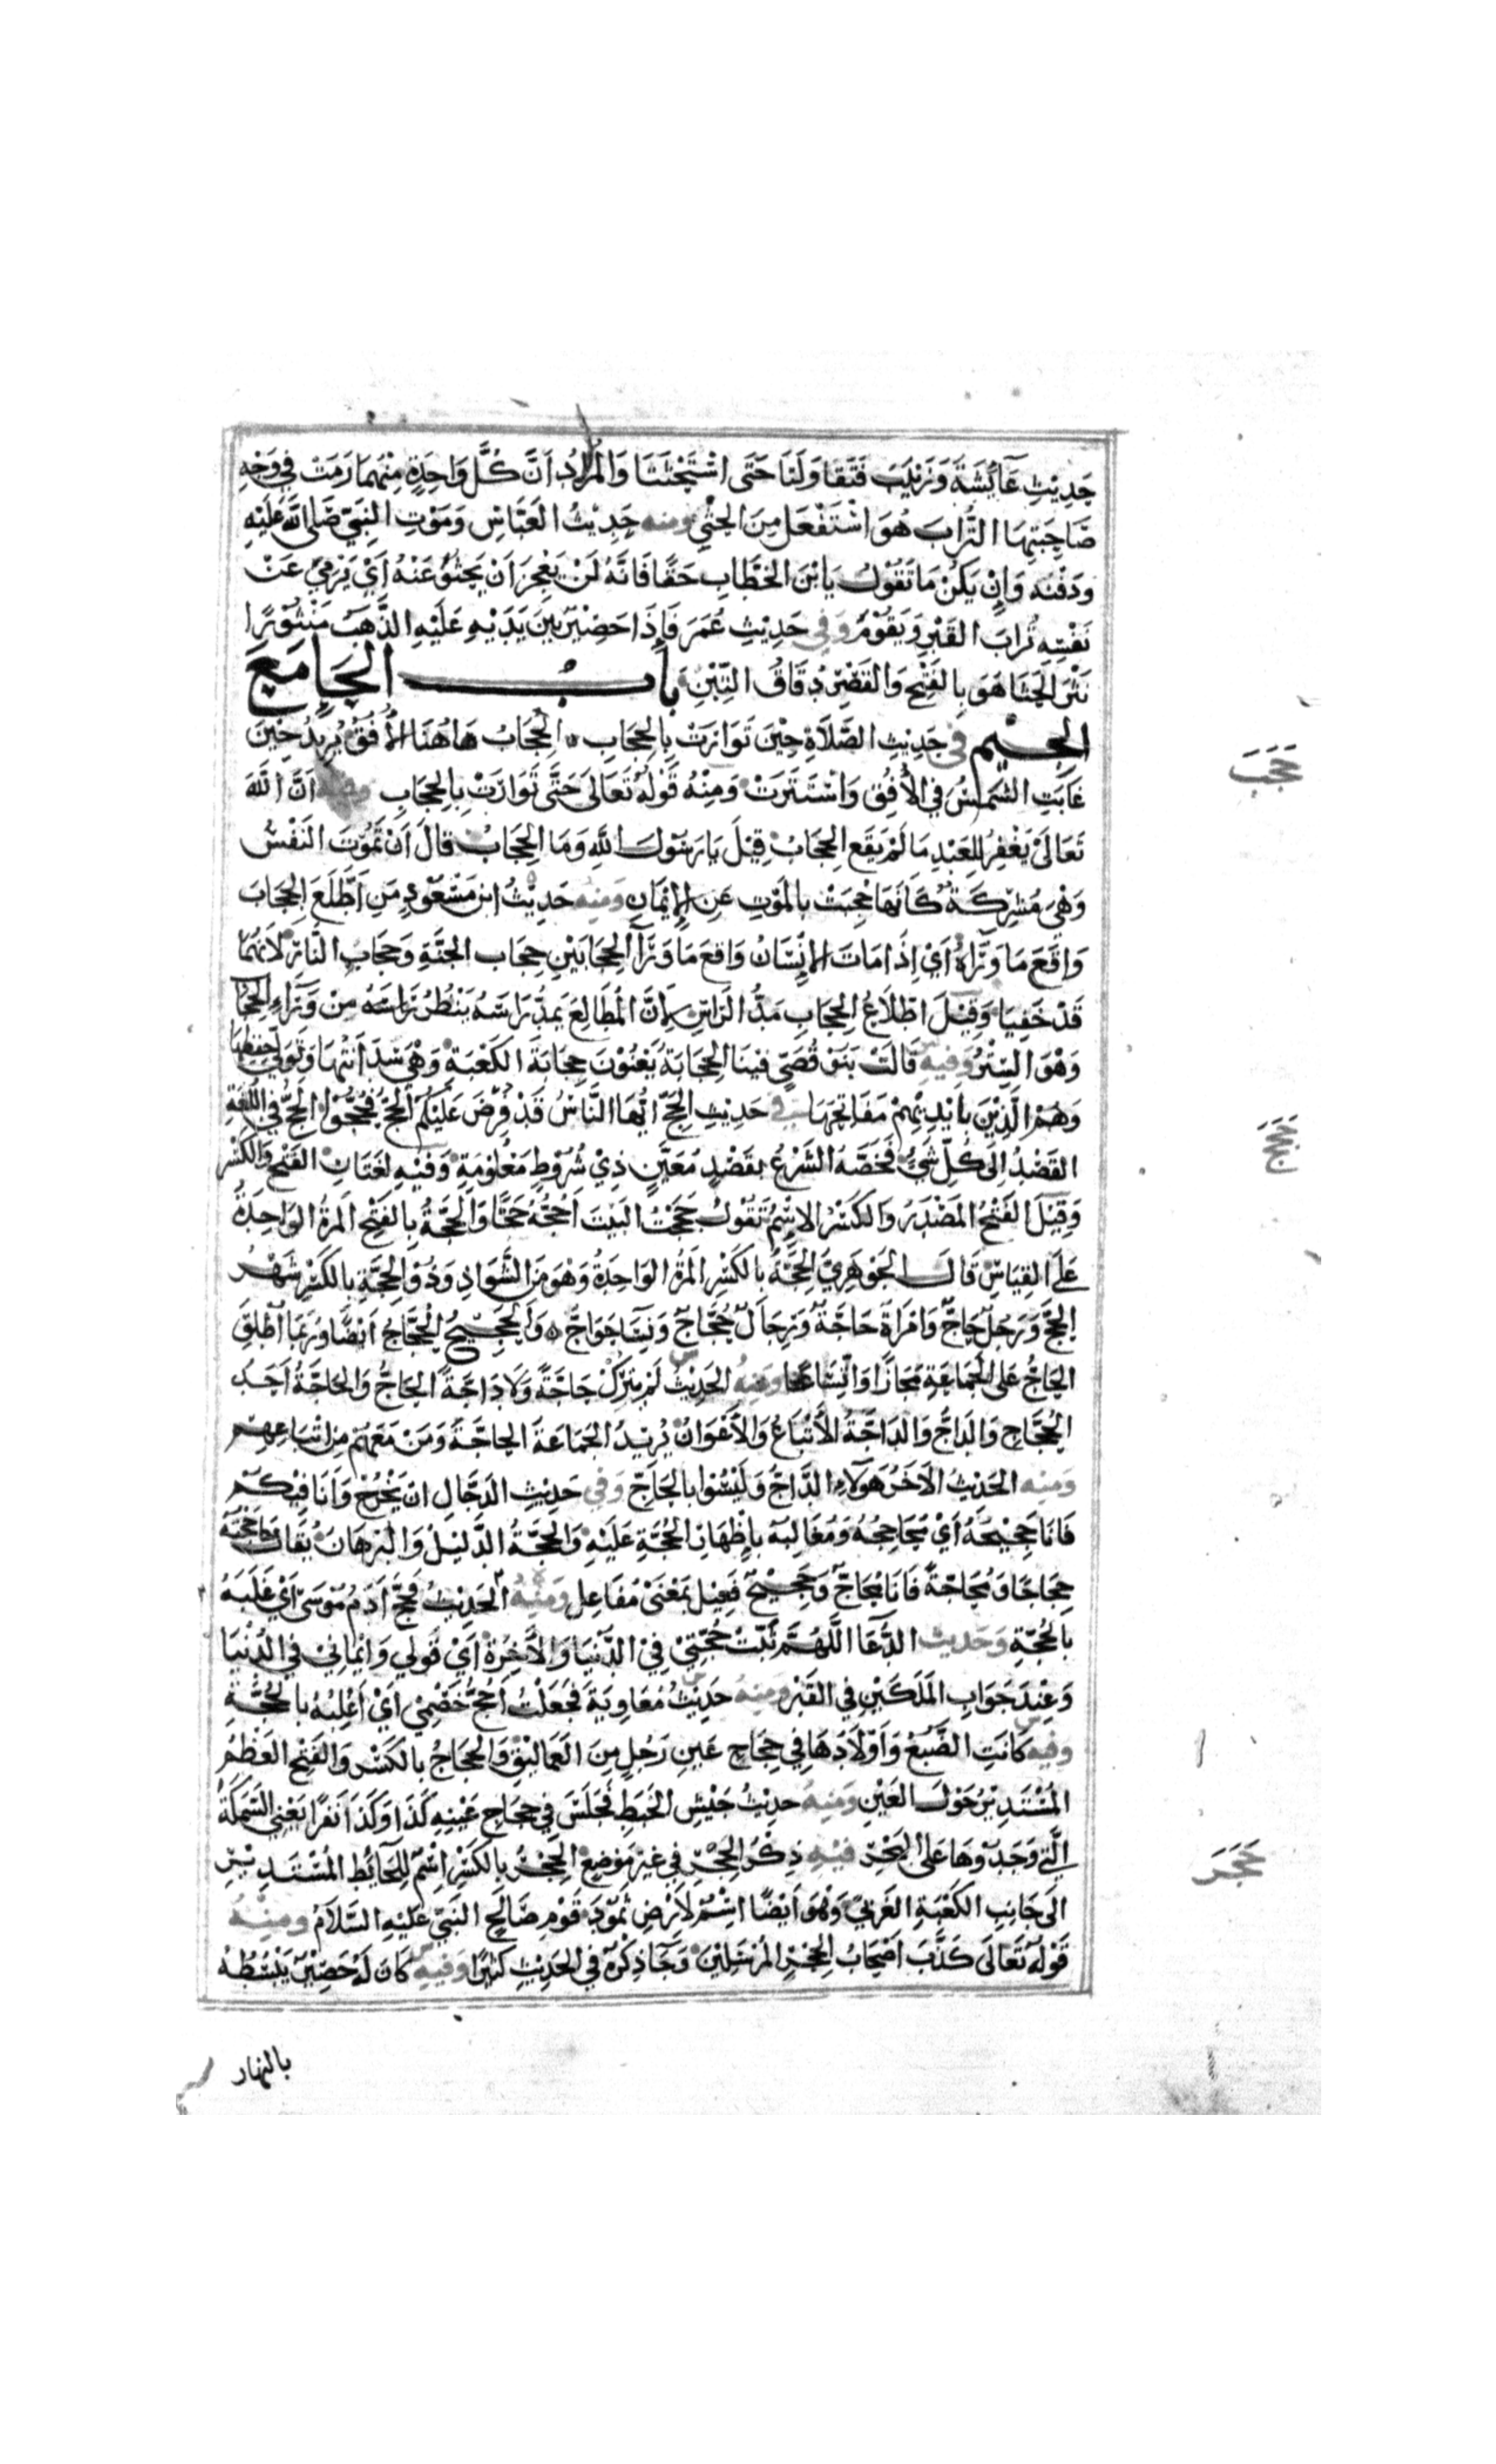 حَدِيْثِ عَآئِشَةَ وَزَيْنَبَ فَتَقَاوَلَتَا حَتَّى اسْتَحْثَتَا وَالْمُرَادُ اَنَّ كُلَّ وَاحِدَةٍ مِنْهُمَا رَمَتْ فِي وَجْهِ
صَاحِبَتِهَا التُّرَابَ هُوَ اسْتَفْعَلَ مِنَ الحَثْيِ ومنه حَدِيْثُ العَبَّاسِ وَمَوْتِ النَّبِيِّ صَلَّى اللَّهُ عَلَيْهِ
وَدَفْنِه وَاِنْ يَكُنْ مَا تَقُوْلُ يَا بْنَ الخَطَّابِ حَقًّا فَاِنَّهُ لَنْ يَعْجِزَ اَنْ يَحْثُوَ عَنْهُ اَيْ يَرْمِيَ عَنْ
نَفْسِهِ تُرَابَ القَبْرِ وَيَقُوْمَ وَفِي حَدِيْثِ عُمَرَ فَاِذَا حَصِيْرٌ بَيْنَ يَدَيْهِ عَلَيْهِ الذَّهَبُ مَنْثُوْرًا
نَثْرَ الحَثَا هُوَ بِالفَتْحِ وَالقَصْرِ دُقَاقُ التِّبْنِ بابُ الحَاءِ مَعَ
الجيم في حَدِيْثِ الصَّلَاةِ حِيْنَ تَوَارَتْ بِالحِجَابِ الحِجَابُ هَاهُنَا الأُفُقُ يُرِيْدُ حِيْنَ
غَابَتِ الشَّمْسُ فِي الأُفُقِ وَاسْتَتَرَتْ وَمِنْهُ قَوْلُهُ تَعَالَى حَتَّى تَوَارَتْ بِالحِجَابِ ومنه اَنَّ اللَّهَ
تَعَالَى يَغْفِرُ لِلعَبْدِ مَا لَمْ يَقَعِ الحِجَابُ قِيْلَ يَا رَسُوْلَ اللَّهِ وَمَا الحِجَابُ قَالَ اَنْ تَمُوْتَ النَّفْسُ
وَهْيَ مُشْرِكَةٌ كَأَنَّهَا حُجِبَتْ بِالمَوْتِ عَنِ الاِيْمَانِ وَمِنْه حَدِيْثُ ابْنِ مَسْعُوْدٍ مَنِ اطَّلَعَ الحِجَابَ
وَاقَعَ مَا وَرَاءَهُ اَيْ اِذَا مَاتَ الاِنْسَانُ وَاقَعَ مَا وَرَاءَ الحِجَابَيْنِ حِجَابِ الجَنَّةِ وَحِجَابِ النَّارِ لِاَنَّهُمَا
قَدْ خَفِيَا وَقِيْلَ اطِّلَاعُ الحِجَابِ مَدُّ الرَّاْسِ لِاَنَّ المُطَالِعَ يَمُدُّ رَاْسَهُ يَنْظُرُ مِنْ وَرَاءِ الحِجَابِ
وَهُوَ السِّتْرُ وَفِيه قَالَتْ بَنُوْ قُصَيٍّ فِيْنَا الحِجَابَةُ يَعْنُوْنَ حِجَابَةَ الكَعْبَةِ وَهْيَ سِدَانَتُهَا وَتَوَلِّيْ حِفْظِهَا
وَهُمُ الَّذِيْنَ بِاَيْدِيْهِمْ مَفَاتِحُهَا في حَدِيْثِ الحَجِّ اَيُّهَا النَّاسُ قَدْ فُرِضَ عَلَيْكُمُ الحَجُّ فَحُجُّوْا الحَجُّ فِي اللُّغَةِ
القَصْدُ اِلَى كُلِّ شَيْءٍ فَخَصَّهُ الشَّرْعُ بِقَصْدٍ مُعَيَّنٍ ذِيْ شُرُوْطٍ مَعْلُوْمَةٍ وَفِيْهِ لُغَتَانِ الفَتْحُ وَالكَسْرُ
وَقِيْلَ الفَتْحُ المَصْدَرُ وَالكَسْرُ الاِسْمُ تَقُوْلُ حَجَجْتُ البَيْتَ اَحُجُّهُ حَجًّا وَالحَجَّةُ بِالفَتْحِ المَرَّةُ الوَاحِدَةُ
عَلَى القِيَاسِ قَالَ الجَوْهَرِيُّ الحِجَّةُ بِالكَسْرِ المَرَّةُ الوَاحِدَةُ وَهْوَ مِنَ الشَّوَاذِ وَذُو الحِجَّةِ بِالكَسْرِ شَهْرُ
الحَجِّ وَرَجُلٌ حَاجٌّ وَامْرَاَةٌ حَاجَّةٌ وَرِجَالٌ حُجَّاجٌ وَنِسَاءٌ حَوَاجُّ وَالحَجِيْجُ الحُجَّاجُ اَيْضًا وَرُبَّمَا اُطْلِقَ
الحَاجُّ عَلَى الجَمَاعَةِ مَجَازًا وَاتِّسَاعًا وَمِنْهُ الحَدِيْثُ لَمْ يَتْرُكْ حَاجَّةً وَلَا دَاجَّةً الحَاجُّ وَالحَاجَّةُ اَحَدُ
الحُجَّاجِ وَالدَّاجُّ وَالدَّاجَّةُ الأَتْبَاعُ وَالأَعْوَانُ يُرِيْدُ الجَمَاعَةَ الحَاجَّةَ وَمَنْ مَعَهُمْ مِنْ اَتْبَاعِهِمْ
وَمِنْه الحَدِيْثُ الآخَرُ هَؤُلَاءِ الدَّاجُّ وَلَيْسُوا بِالحَاجِّ وَفِي حَدِيْثِ الدَّجَّالِ اِنْ يَخْرُجْ وَاَنَا فِيْكُمْ
فَاَنَا حَجِيْجُهُ اَيْ مُحَاجِجُهُ وَمُغَالِبُهُ بِاِظْهَارِ الحُجَّةِ عَلَيْهِ وَالحُجَّةُ الدَّلِيْلُ وَالبُرْهَانُ يُقَالُ حَاجَجْتُهُ
حِجَاجًا وَمُحَاجَّةً فَاَنَا مُحَاجٌّ وَحَجِيْجٌ فَعِيْلٌ بِمَعْنَى مُفَاعِلٍ وَمِنْهُ الحَدِيْثُ فَحَجَّ آدَمُ مُوْسَى اَيْ غَلَبَهُ
بِالحُجَّةِ وَحَدِيث الدُّعَا اللَّهُمَّ ثَبِّتْ حُجَّتِيْ فِي الدُّنْيَا وَالآخِرَةِ اَيْ قَوْلِي وَاِيْمَانِيْ فِي الدُّنْيَا
وَعِنْدَ جَوَابِ المَلَكَيْنِ فِي القَبْرِ ومنه حَدِيْثُ مُعَاوِيَةَ فَجَعَلْتُ اَحُجُّ خَصْمِيْ اَيْ اَغْلِبُهُ بِالحُجَّةِ
وفيه كَانَتِ الضَّبُعُ وَاَوْلَادُهَا فِي حِجَاجِ عَيْنِ رَجُلٍ مِنَ العَمَالِيْقِ وَالحِجَاجُ بِالكَسْرِ وَالفَتْحِ العَظْمُ
المُسْتَدِيْرُ حَوْلَ العَيْنِ وَمِنْهُ حَدِيْثُ جَيْشِ الخَبَطِ فَجَلَسَ فِي حِجَاجِ عَيْنِهِ كَذَا وَكَذَا نَفَرًا يَعْنِي السَّمَكَةَ
الَّتِي وَجَدُوْهَا عَلَى البَحْرِ فيه ذِكْرُ الحِجْرِ فِي غَيْرِ مَوْضِعٍ الحِجْرُ بِالكَسْرِ اسْمٌ لِلحَآئِطِ المُسْتَدِيْرِ
اِلَى جَانِبِ الكَعْبَةِ الغَرْبِيِّ وَهُوَ اَيْضًا اسْمٌ لِاَرْضِ ثَمُوْدَ قَوْمِ صَالِحٍ النَّبِيِّ عَلَيْهِ السَّلَامُ ومنه
قَوْلُهُ تَعَالَى كَذَّبَ اَصْحَابُ الحِجْرِ المُرْسَلِيْنَ وَجَآءَ ذِكْرُهُ فِي الحَدِيْثِ كَثِيْرًا وَفِيه كَانَ لَهُ حَصِيْرٌ يَبْسُطُهُ
بالنهار
حَجَبَ
حَجَجَ
حَجَرَ